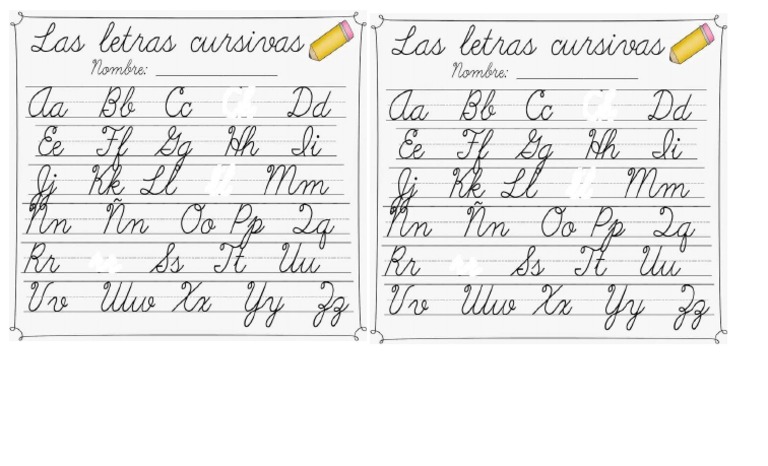 Las letras cursivas
Nombre:
Aa Bb Cc Dd
Ee Ff Gg Hh Ii
Jj Kk Ll Mm
Nn Ññ Oo Pp Qq
Rr Ss Tt Uu
Vv Ww Xx Yy Zz
Las letras cursivas
Nombre:
Aa Bb Cc Dd
Ee Ff Gg Hh Ii
Jj Kk Ll Mm
Nn Ññ Oo Pp Qq
Rr Ss Tt Uu
Vv Ww Xx Yy Zz